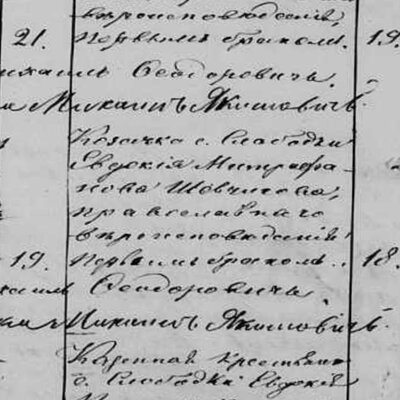 вѣроисповѣданія
21. первымъ бракомъ. 19.
ихаилъ Ѳеодоровичъ.
Михаилъ Якимовичъ.
Козачка с. Слободки
Евдокія Митрофа-
нова Шовчикова,
православнаго
вѣроисповѣданія
19. первымъ бракомъ. 18.
хаилъ Ѳеодоровичъ.
Михаилъ Якимовичъ.
Казенная крестьян
с. Слободки Евдокія